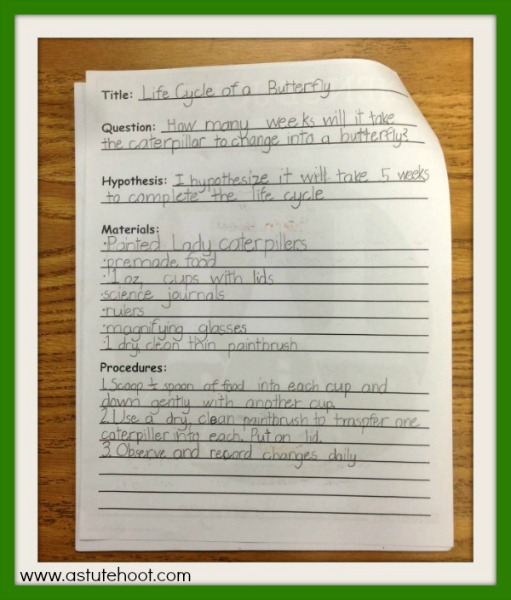 Title: Life Cycle of a Butterfly
Question: How many weeks will it take
the caterpillar to change into a butterfly?
Hypothesis: I hypothesize it will take 5 weeks
to complete the life cycle
Materials:
·Painted Lady caterpillers
·premade food
·1 oz. cups with lids
·science journals
·rulers
·magnifying glasses
·1 dry, clean thin paintbrush
Procedures:
1. Scoop ½ spoon of food into each cup and
down gently with another cup.
2. Use a dry, clean paintbrush to trasnfer one
caterpiller into each. Put on lid.
3. Observe and record changes daily
www.astutehoot.com